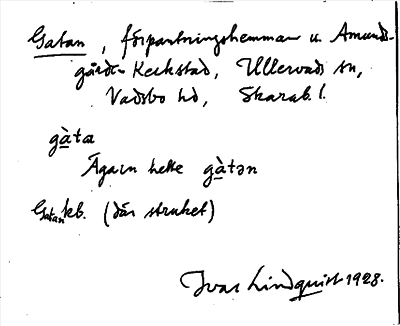 Gatan, förpantningshemman u. Amunds-
gården Keckstad, Ullervads sn,
Vadsbo hd, Skarab. l.
gàta
Ägaren hette gàtən
Gatan kb. (där struket)
Ivar Lindquist 1928.